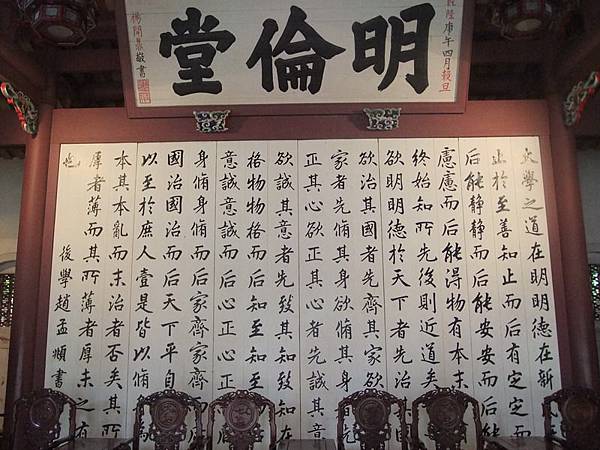 明倫堂
隆庚午四月穀旦
楊開鼎敬書
大學之道在明明德在新民
止於至善知止而后有定定而
后能靜靜而后能安安而后能
慮慮而后能得物有本末
終始知所先後則近道矣
欲明明德於天下者先治其國
欲治其國者先齊其家欲
家者先脩其身欲脩其身者
正其心欲正其心者先誠其意
欲誠其意者先致其知致知在
格物物格而后知至知至
意誠意誠而后心正心正
身脩身脩而后家齊家齊而
國治國治而后天下平自
以至於庶人壹是皆以脩
本其本亂而末治者否矣其所
厚者薄而其所薄者厚未之有
也
後學趙孟頫書